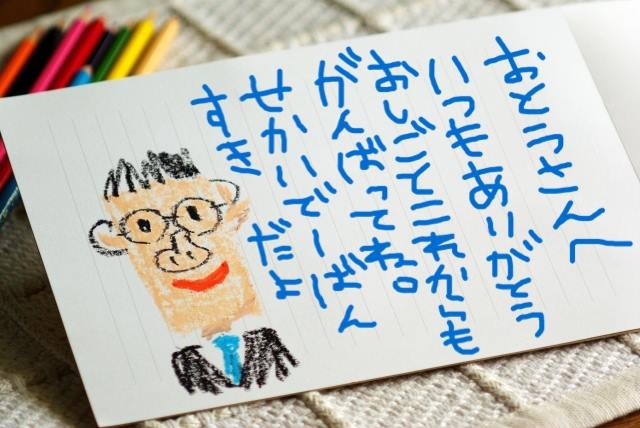 おとうさんへ
いつもありがとう
おしごとこれからも
がんばってね。
せかいでーばん
すき だよ